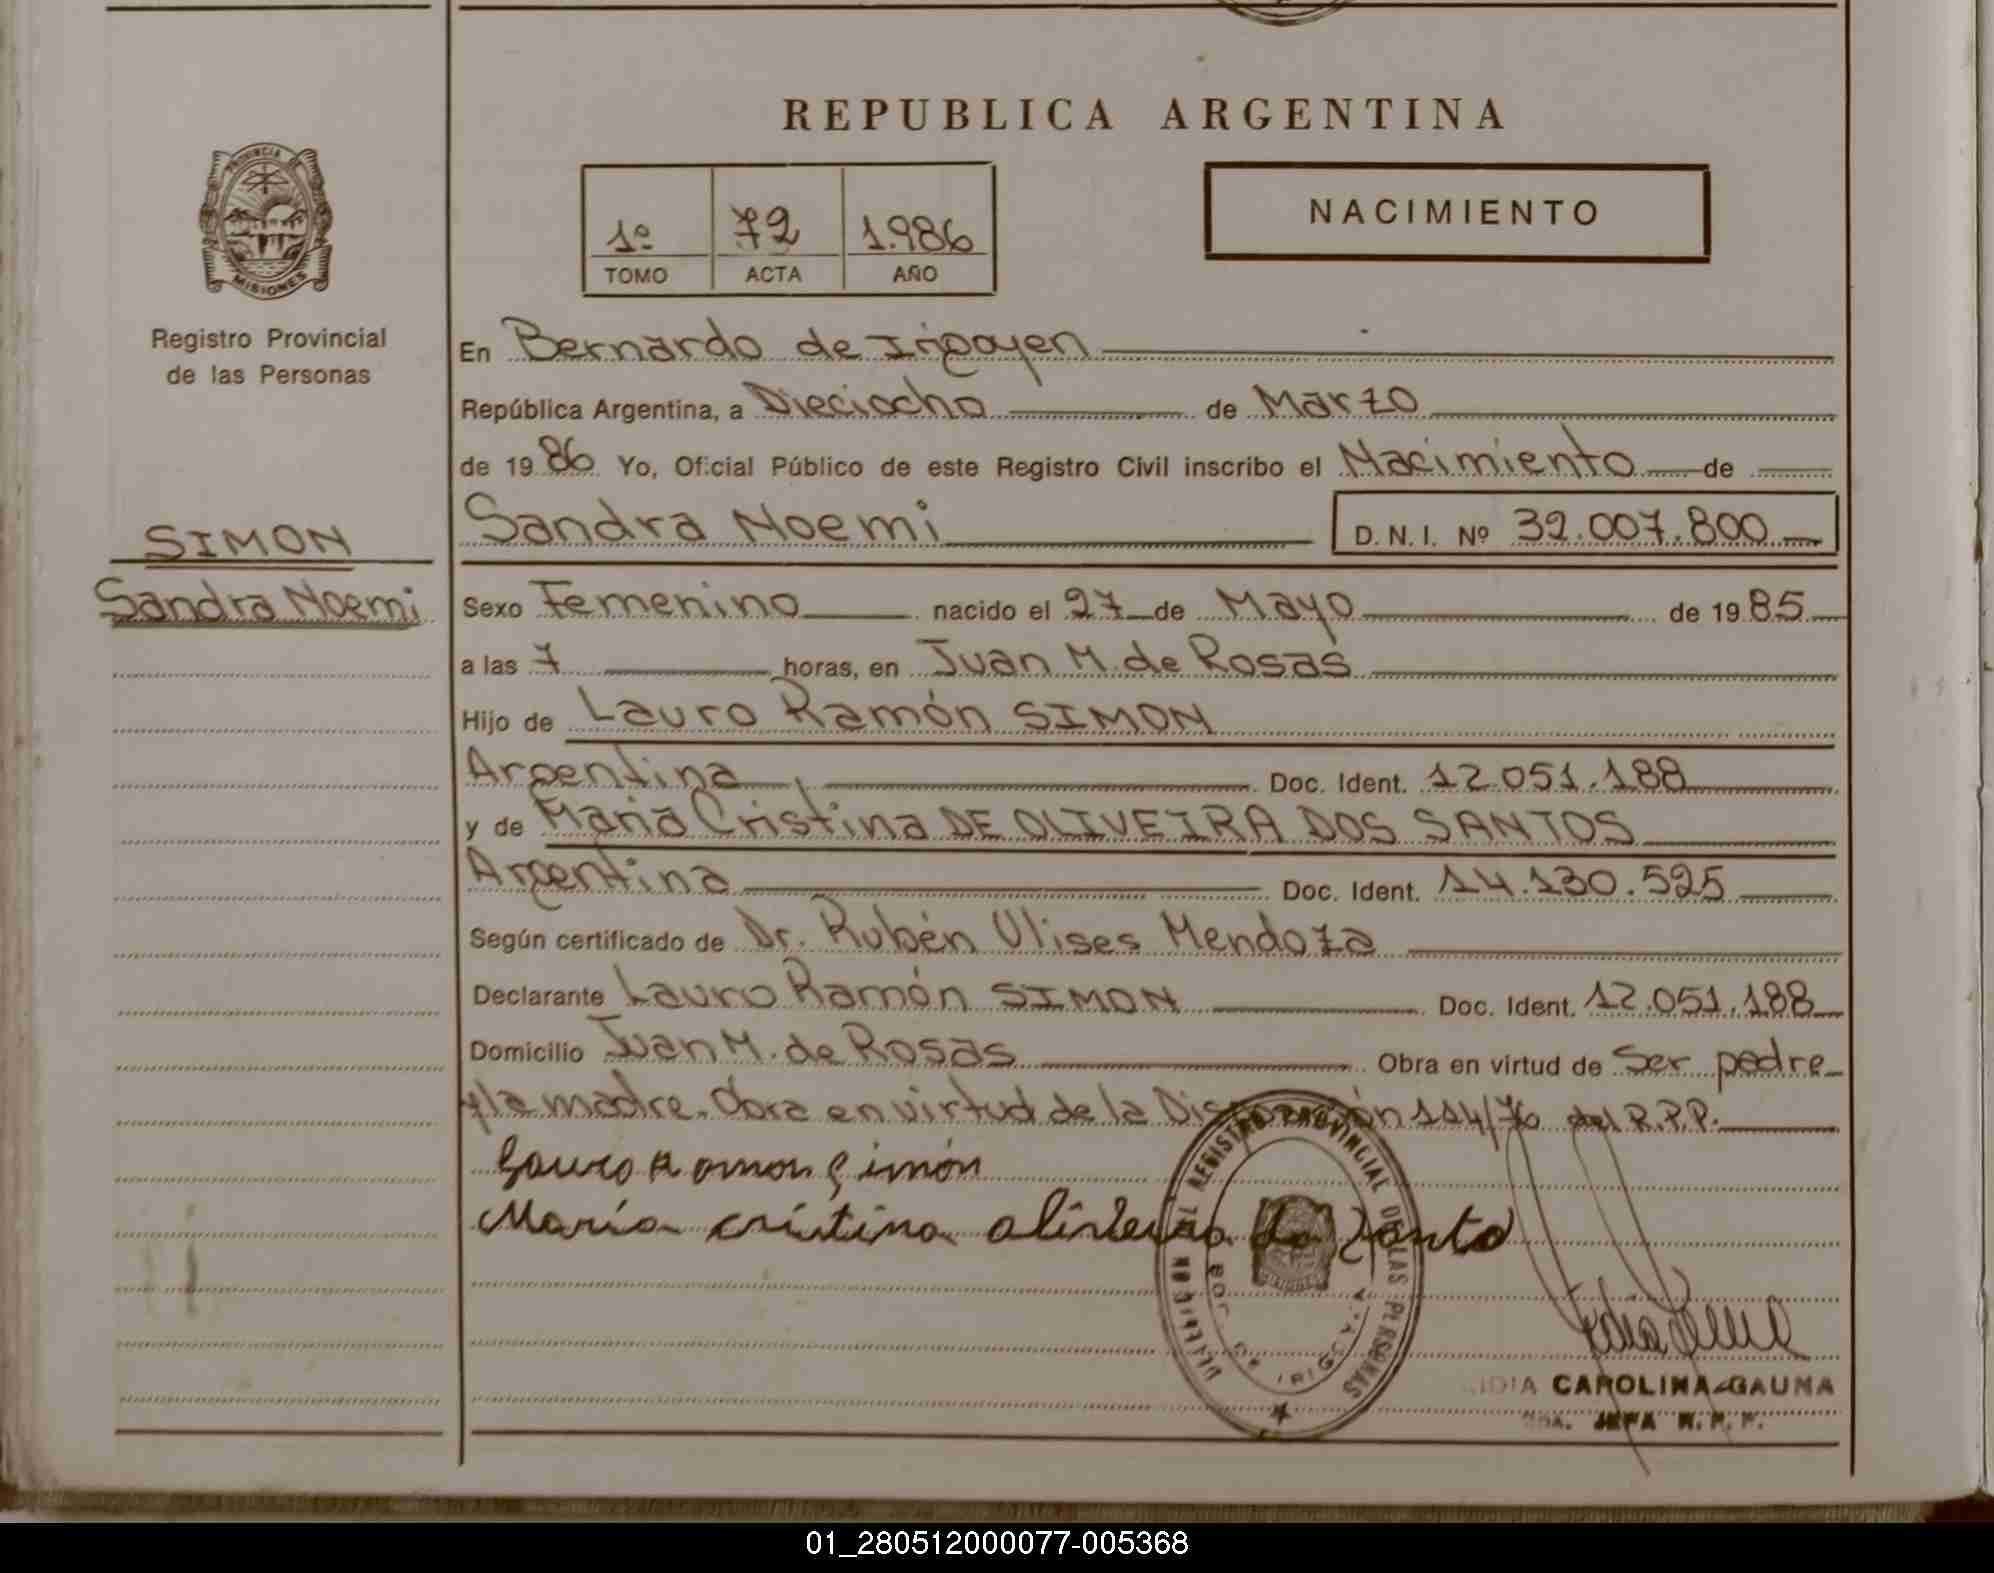 REPUBLICA ARGENTINA
PROVINCIA DE
MISIONES
Registro Provincial
de las Personas
1º 72 1.986
TOMO ACTA AÑO
NACIMIENTO
En Bernardo de Irigoyen
República Argentina, a Dieciocho de Marzo
de 1986 Yo, Oficial Público de este Registro Civil inscribo el Nacimiento de
Sandra Noemi D. N. I. Nº 32.007.800
SIMON
Sandra Noemi
Sexo Femenino nacido el 27 de Mayo de 1985
a las 7 horas, en Juan M. de Rosas
Hijo de Lauro Ramón SIMON
Argentina Doc. Ident. 12.051.188
y de Maria Cristina DE OLIVEIRA DOS SANTOS
Argentina Doc. Ident. 14.130.525
Según certificado de Dr. Rubén Ulises Mendoza
Declarante Lauro Ramón SIMON Doc. Ident. 12.051.188
Domicilio Juan M. de Rosas Obra en virtud de Ser padre
y la madre. Obra en virtud de la Disposición 114/76 del R.P.P.
Lauro Ramon Simón
María cristina olivleira do Santo
REGISTRO PROVINCIAL DE LAS PERSONAS
DELEGACION
IDIA CAROLINA GAUNA
JEFA R. P. P.
01_280512000077-005368